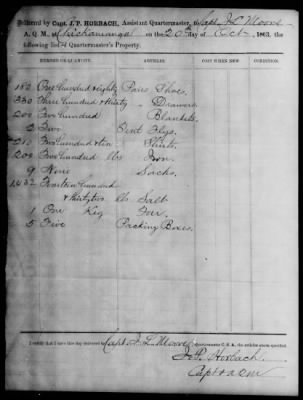 Delivered by Capt. J. P. HORBACH, Assistant Quartermaster, to Capt. J. L. Moore
A. Q. M., at Chickamauga on the 20th day of Oct, 1863, the
following list of Quartermaster's Property.
NUMBER OR QUANTITY. ARTICLES. COST OR CONDITION.
180 One hundred eighty Pairs Shoes.
330 Three hundred & thirty " Drawers
200 Two hundred Blankets.
2 Two Tent Flys.
210 Two hundred & ten Shirts.
200 Two hundred lbs Iron.
9 Nine Sacks.
1432 Fourteen hundred
& thirty two lbs Salt
1 One Keg
5 Five Packing Boxes.
I certify that I have this day delivered to Capt J. L. Moore Quartermaster C. S. A., the articles above specified.
J. P. Horbach.
Capt & aqm